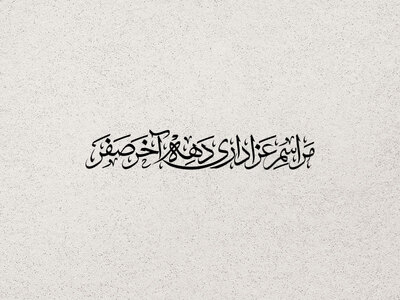 مراسم عزاداری دهه آخر صفر